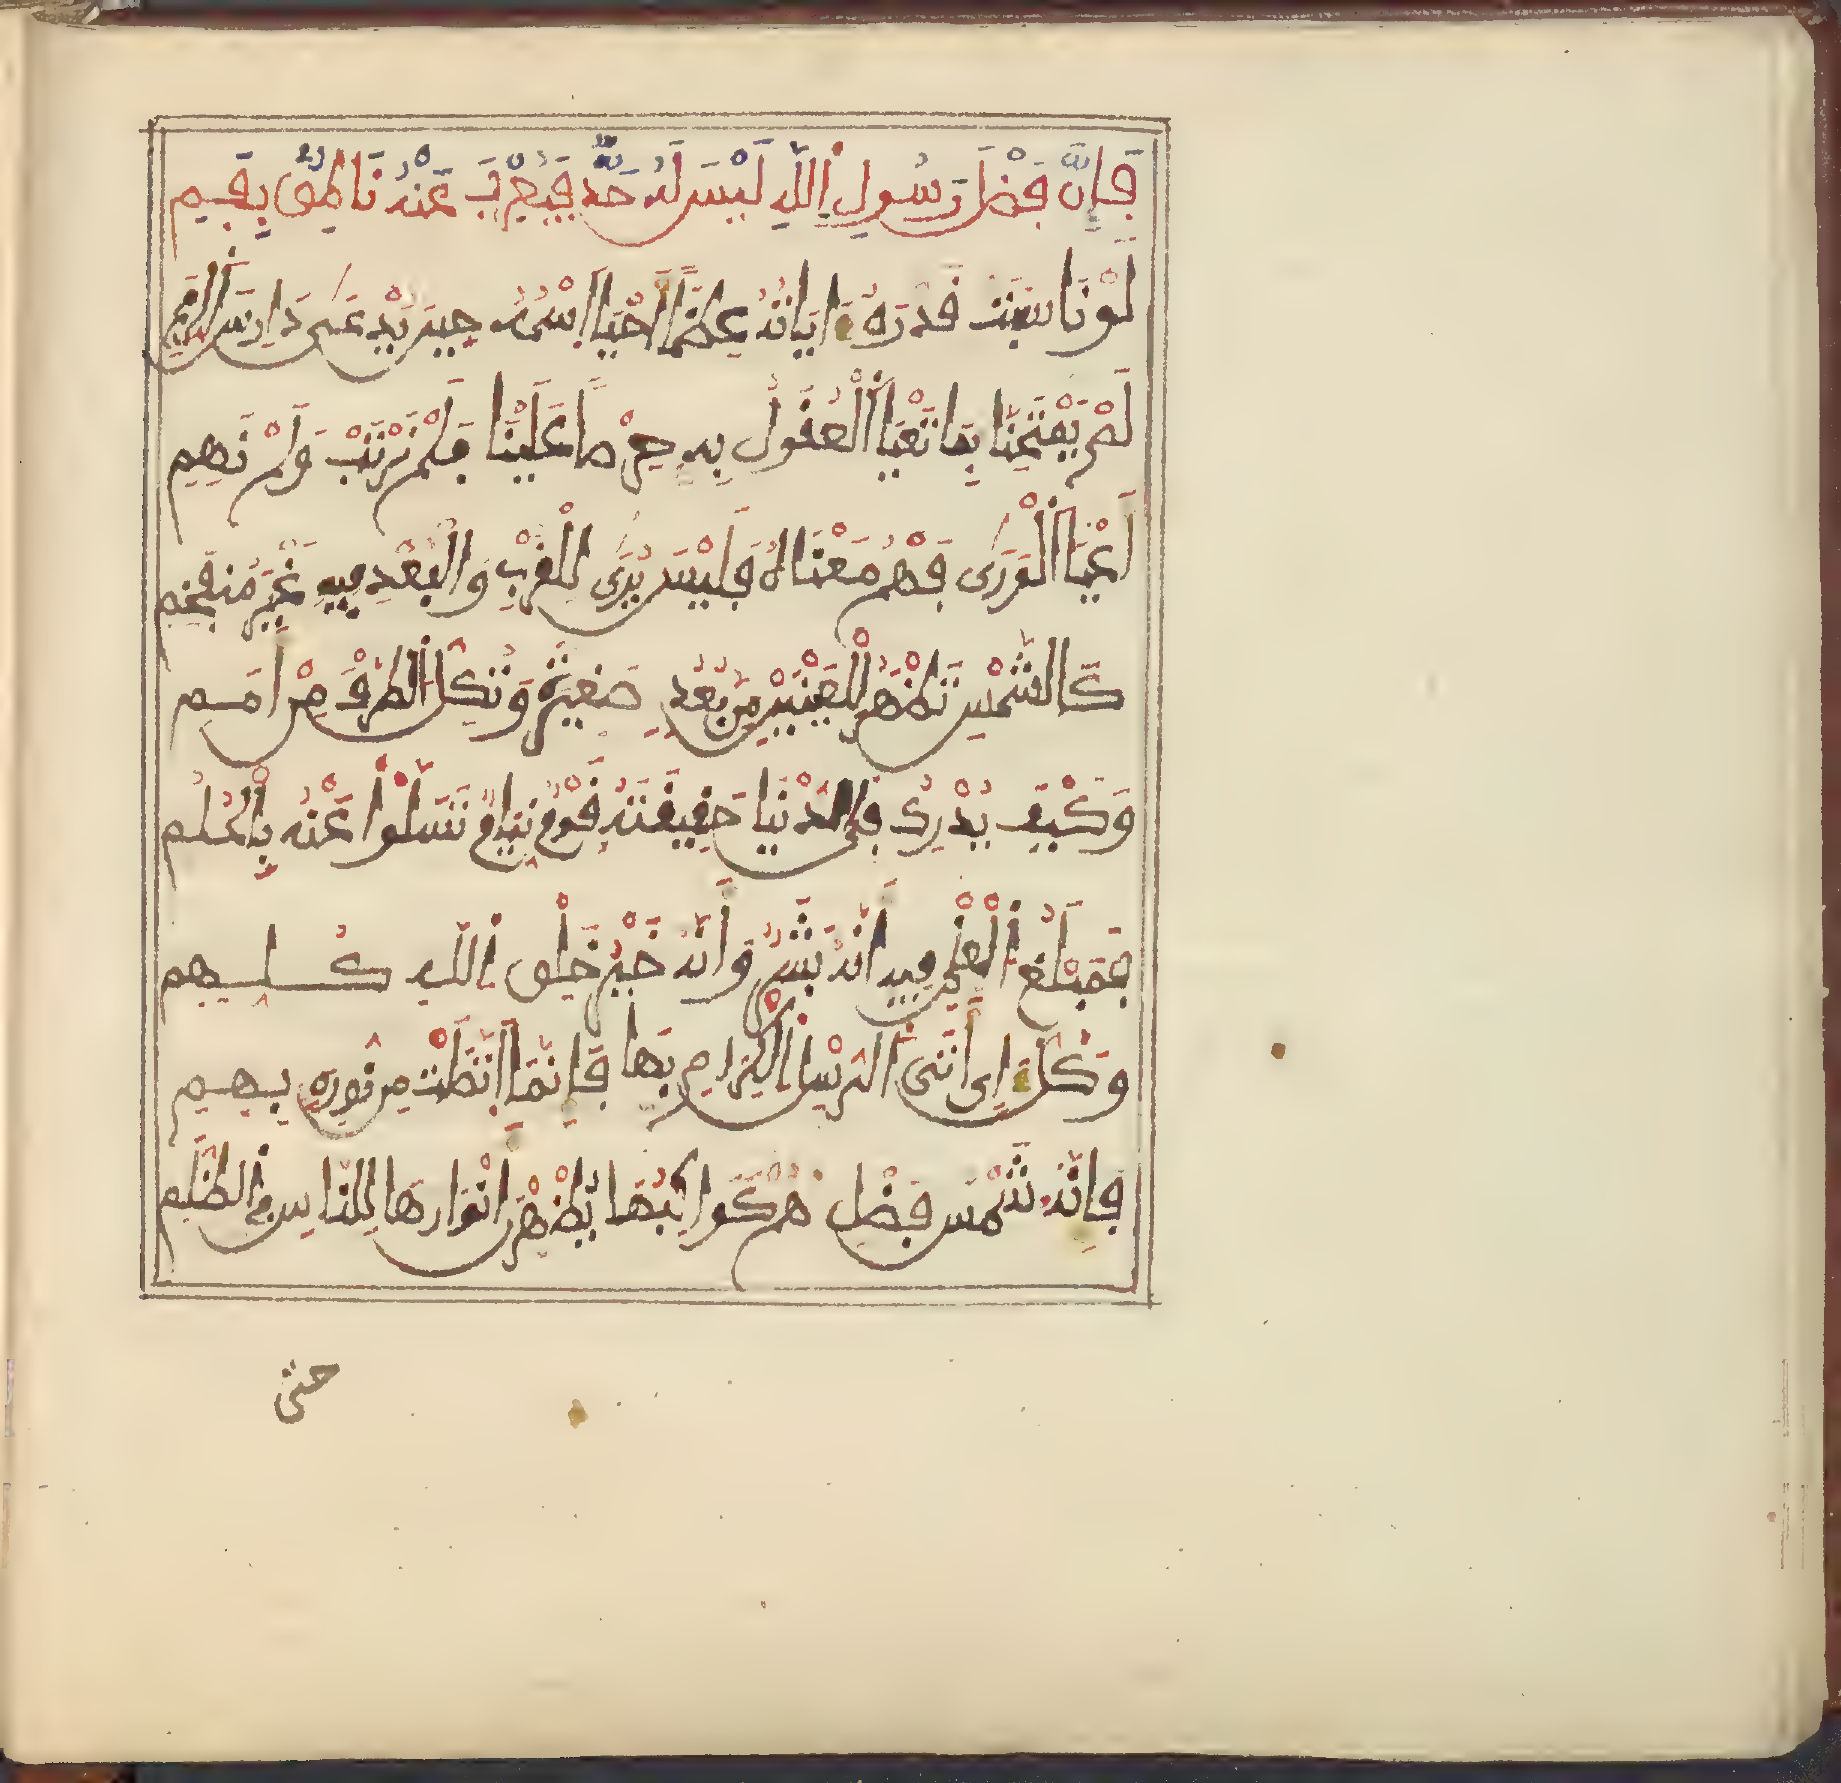 فَإِنَّ فَضْلَ رَسُولِ اللَّهِ لَيْسَ لَهُ حَدٌّ فَيُعْرِبَ عَنْهُ نَاطِقٌ بِفَمِ
لَوْ نَاسَبَتْ قَدْرَهُ ءَايَاتُهُ عِظَمًا أَحْيَا اسْمُهُ حِينَ يُدْعَى دَارِسَ الرِّمَمِ
لَمْ يَمْتَحِنَّا بِمَا تَعْيَا الْعُقُولُ بِهِ حِرْصًا عَلَيْنَا فَلَمْ نَرْتَبْ وَلَمْ نَهِمِ
أَعْيَا الْوَرَى فَهْمُ مَعْنَاهُ فَلَيْسَ يُرَى لِلْقُرْبِ وَالْبُعْدِ فِيهِ غَيْرُ مُنفَحِمِ
كَالشَّمْسِ تَظْهَرُ لِلْعَيْنَيْنِ مِن بُعُدٍ صَغِيرَةً وَتُكِلُّ الطَّرْفَ مِنْ أَمَمِ
وَكَيْفَ يُدْرِكُ فِي الدُّنْيَا حَقِيقَتَهُ قَوْمٌ نِيَامٌ تَسَلَّوْا عَنْهُ بِالْحُلُمِ
فَمَبْلَغُ الْعِلْمِ فِيهِ أَنَّهُ بَشَرٌ وَأَنَّهُ خَيْرُ خَلْقِ اللَّهِ كُلِّهِمِ
وَكُلُّ ءَايٍ أَتَى الرُّسْلُ الْكِرَامُ بِهَا فَإِنَّمَا اتَّصَلَتْ مِن نُورِهِ بِهِمِ
فَإِنَّهُ شَمْسُ فَضْلٍ هُمْ كَوَاكِبُهَا يُظْهِرْنَ أَنْوَارَهَا لِلنَّاسِ فِي الظُّلَمِ
حتى